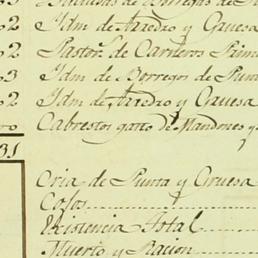 2 Idm de Aredzo y Gruesa
2 Pastor. de Carneros Prim
3 Idm de Borregos de Punt
2 Idm de Aredzo y Gruesa
Cabrestos gasto de Mandones y
31
Cria de Punta y Gruesa
Cofas
Existencia Total
Muerto y Racion